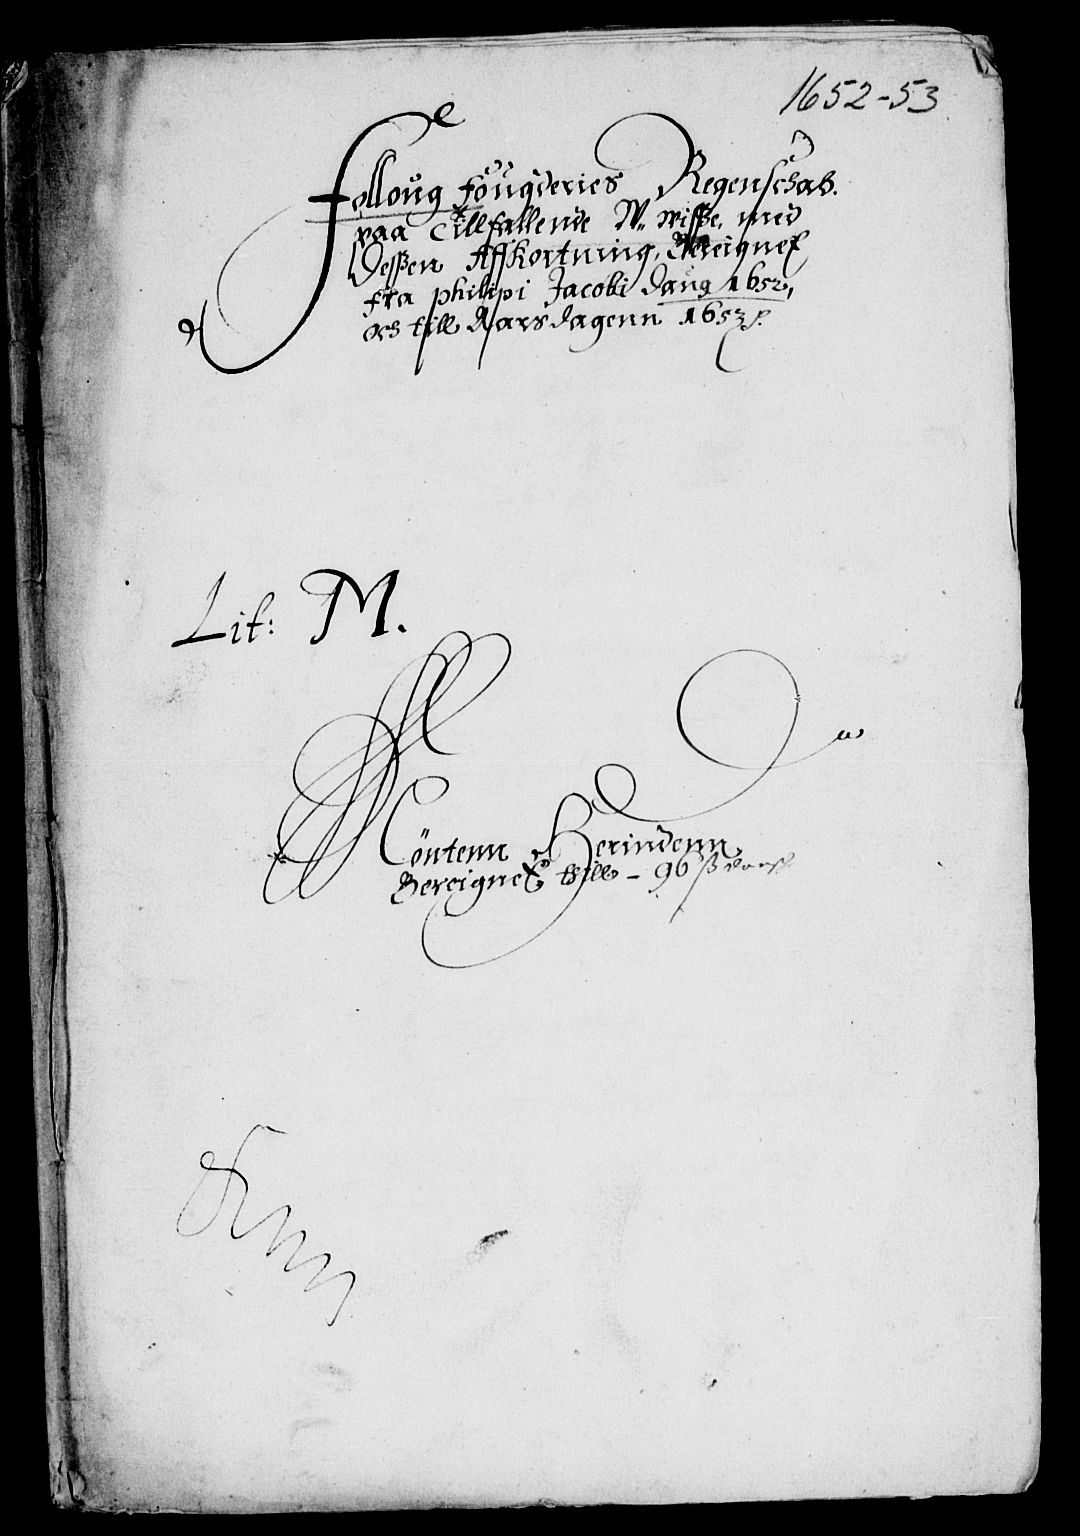 1652-53
Folloug Fougderies Regenschab.
paa Tillfallende W: wisse, med
Dessen Affkortning, Bereignet
fra philipi Jacobi daug 1652,
och till Aarsdagenn 1653
Lit: M.
Contenn Herindenn
Bereignet till - 96 ß